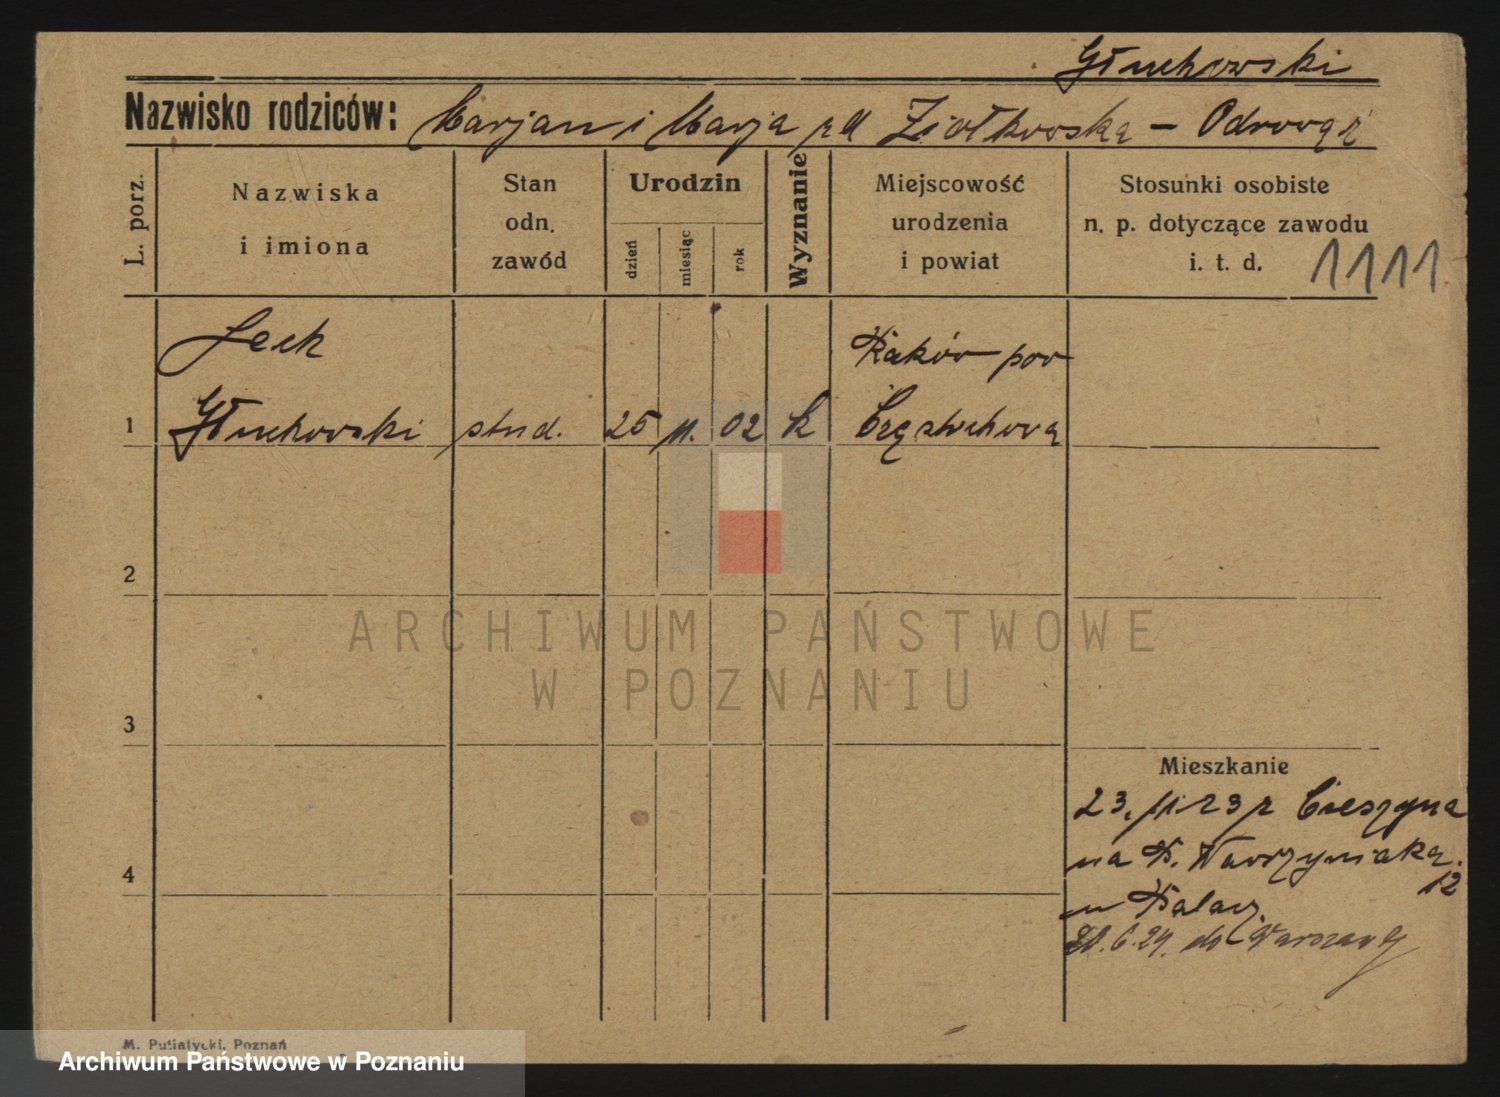 Głuchowski
Nazwisko rodziców: Marjan i Marja zd Ziółkowska – Odrowąż
L. porz.
Nazwiska
i imiona
Stan
odn.
zawód
Urodzin
dzień
miesiąc
rok
Wyznanie
Miejscowość
urodzenia
i powiat
Stosunki osobiste
n. p. dotyczące zawodu
i. t. d. 1111
Lech Raków pow
1 Głuchowski stud. 25 11. 02 k Częstochowa
2
ARCHIWUM PAŃSTWOWE
W POZNANIU
3
Mieszkanie
23. 11. 23 z Cieszyna
4 na W. Wawrzyniaka
12
u
21. 6. 24. do Warszawy
M. Putiatycki, Poznań
Archiwum Państwowe w Poznaniu